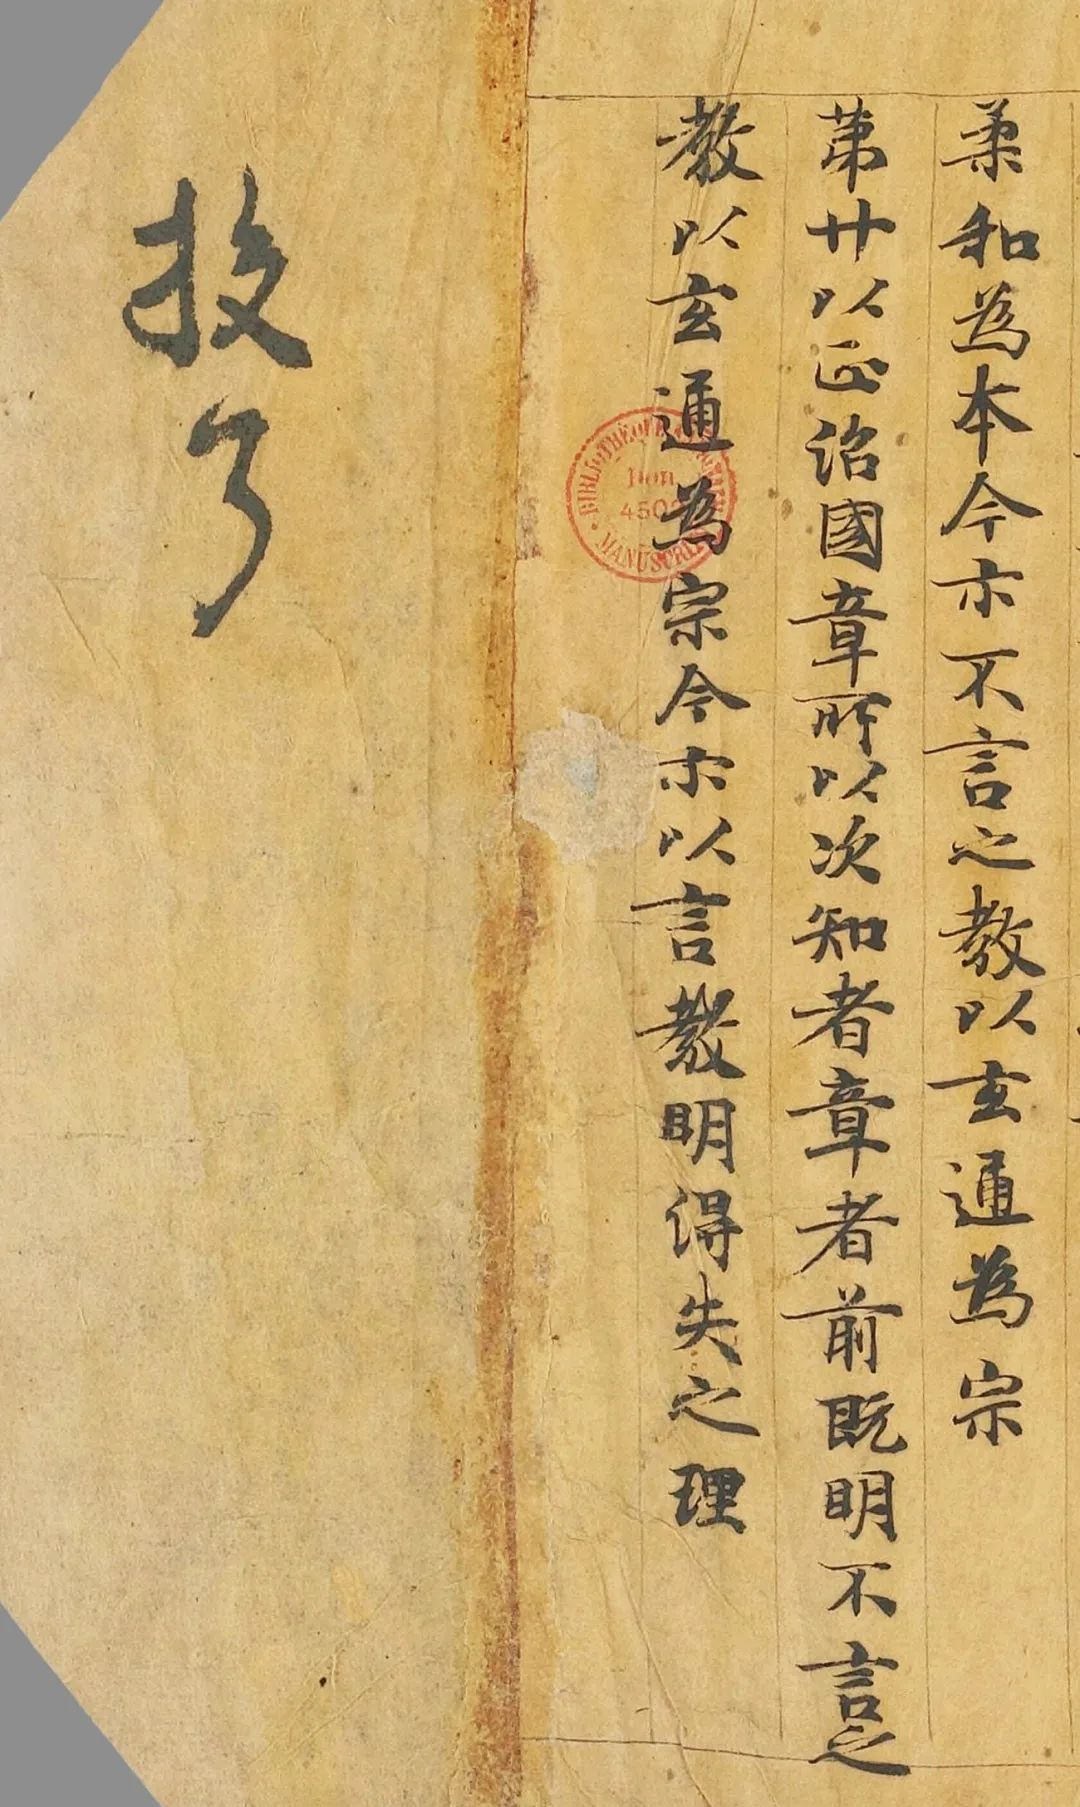 柔和為本今亦不言之教以玄通為宗
第廿以正治國章所以次知者章者前既明不言之
教以玄通為宗今亦以言教明得失之理
投了
BIBLIOTHÈQUE
Don
MANUSCRITS